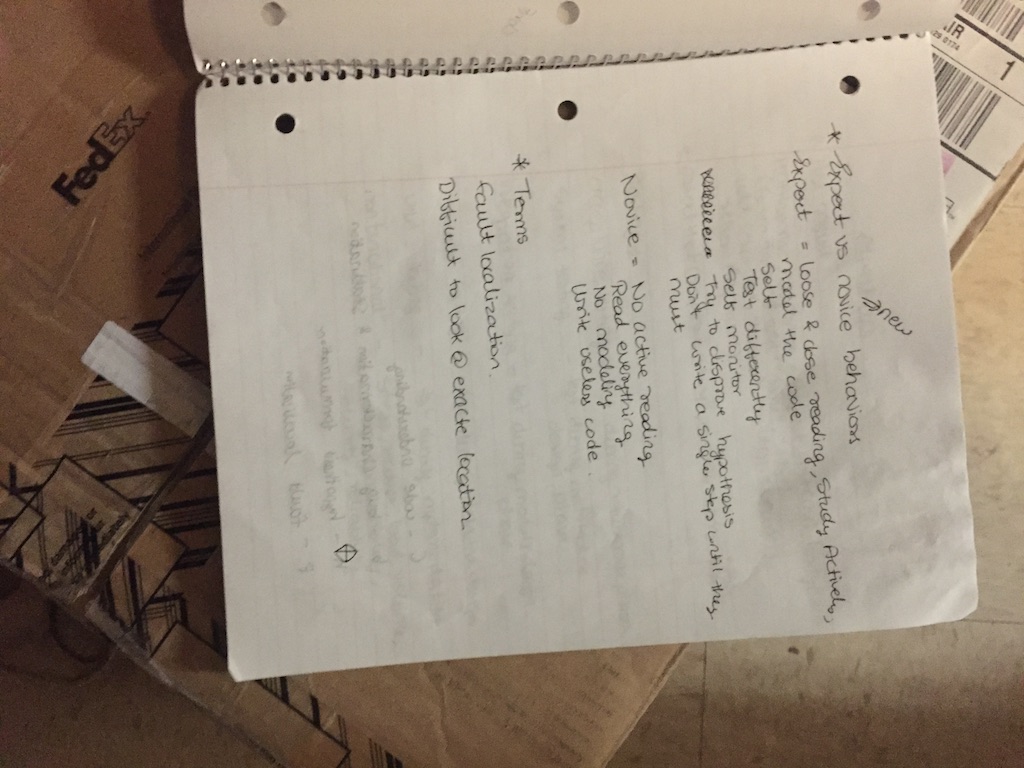 * Expert vs novice behaviors
new
Expert = loose & close reading, Study Actively,
model the code
Self
Test differently
Self monitor
Try to disprove hypothesis
Don't write a single step until they
must
Novice = No active reading
Read everything
No modeling
Write useless code.
* Terms
fault localization.
Difficult to look @ exacte location.
FedEx
1